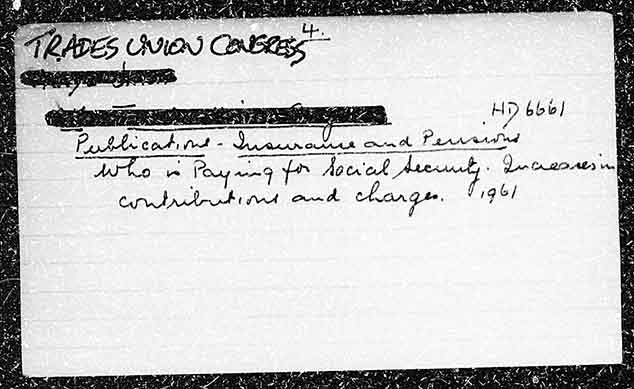 TRADES UNION CONGRESS 4.
HD 6661
Publications - Insurance and Pensions
Who is Paying for Social Security. Increases in
contributions and charges. 1961